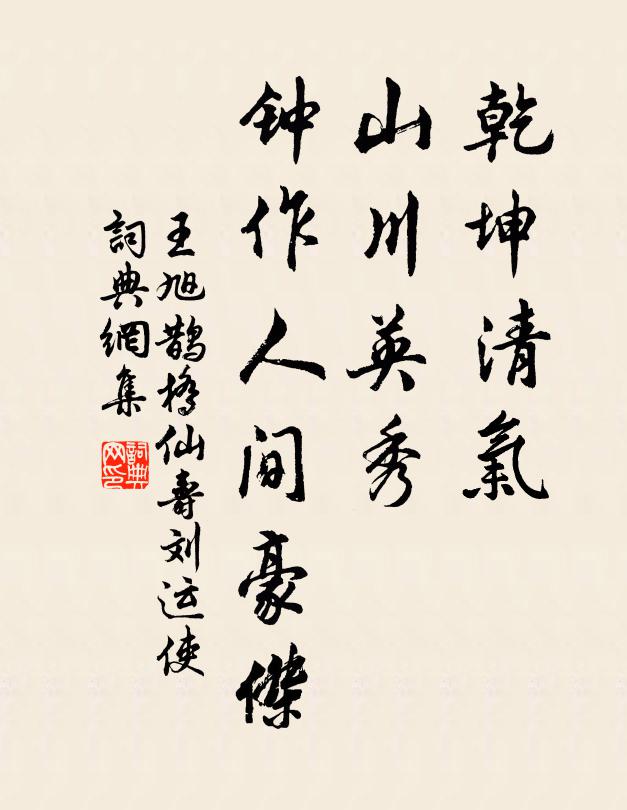 乾坤清氣
山川英秀
钟作人间豪傑
王旭鹊橋仙寿刘运使
詞典網集
詞典
网印